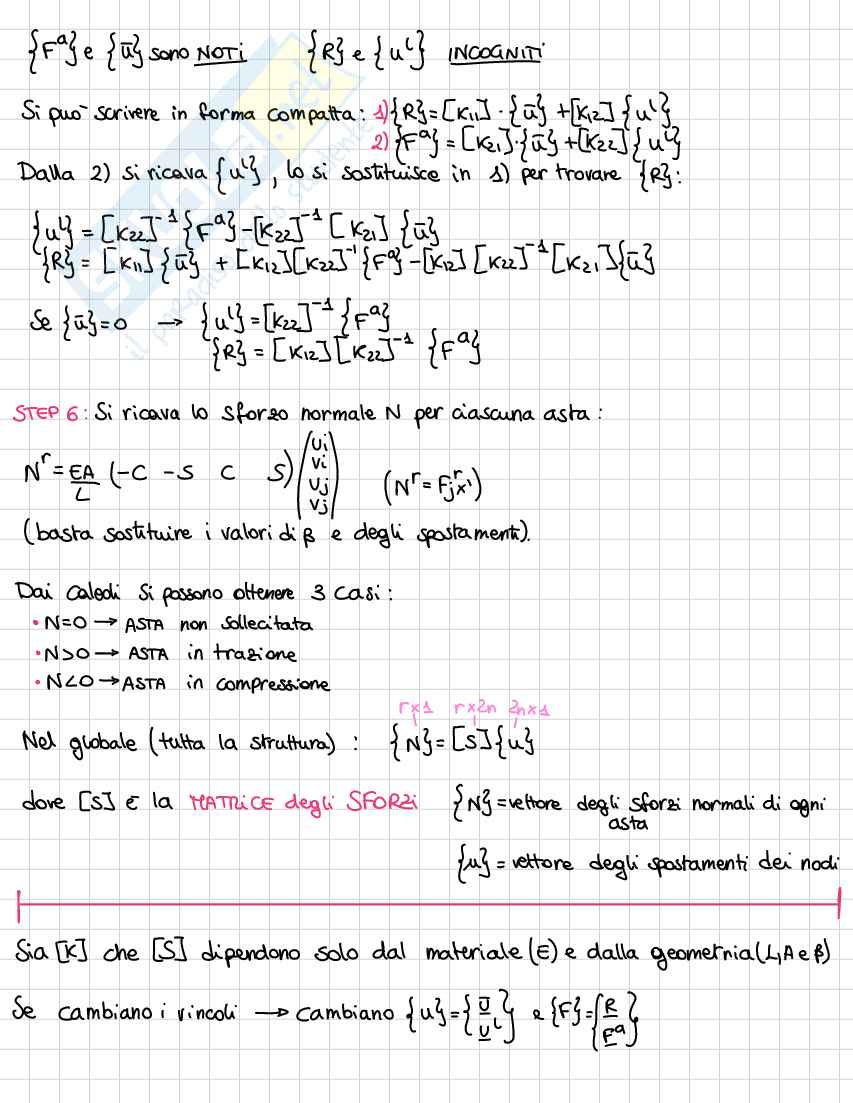 {Fᵃ} e {ū} sono NOTI {R} e {uᴸ} INCOGNITI
Si può scrivere in forma compatta: 1) {R} = [K₁₁]·{ū} + [K₁₂]{uᴸ}
2) {Fᵃ} = [K₂₁]·{ū} + [K₂₂]{uᴸ}
Dalla 2) si ricava {uᴸ}, lo si sostituisce in 1) per trovare {R}:
{uᴸ} = [K₂₂]⁻¹{Fᵃ} - [K₂₂]⁻¹[K₂₁]{ū}
{R} = [K₁₁]{ū} + [K₁₂][K₂₂]⁻¹{Fᵃ} - [K₁₂][K₂₂]⁻¹[K₂₁]{ū}
Se {ū}=0 → {uᴸ} = [K₂₂]⁻¹{Fᵃ}
{R} = [K₁₂][K₂₂]⁻¹ {Fᵃ}
STEP 6: Si ricava lo sforzo normale N per ciascuna asta:
Nʳ = EA/L (-C -S C S) (ui vi uj vj) (Nʳ = Fʳjx')
(basta sostituire i valori di β e degli spostamenti).
Dai calcoli si possono ottenere 3 casi:
• N=0 → ASTA non sollecitata
• N>0 → ASTA in trazione
• N<0 → ASTA in compressione
r×1 r×2n 2n×1
Nel globale (tutta la struttura): {N} = [S]{u}
dove [S] è la MATRICE degli SFORZI {N} = vettore degli sforzi normali di ogni
asta
{u} = vettore degli spostamenti dei nodi
Sia [K] che [S] dipendono solo dal materiale (E) e dalla geometria (L, A e β)
Se cambiano i vincoli → cambiano {u} = {ū uᴸ} e {F} = {R Fᵃ}